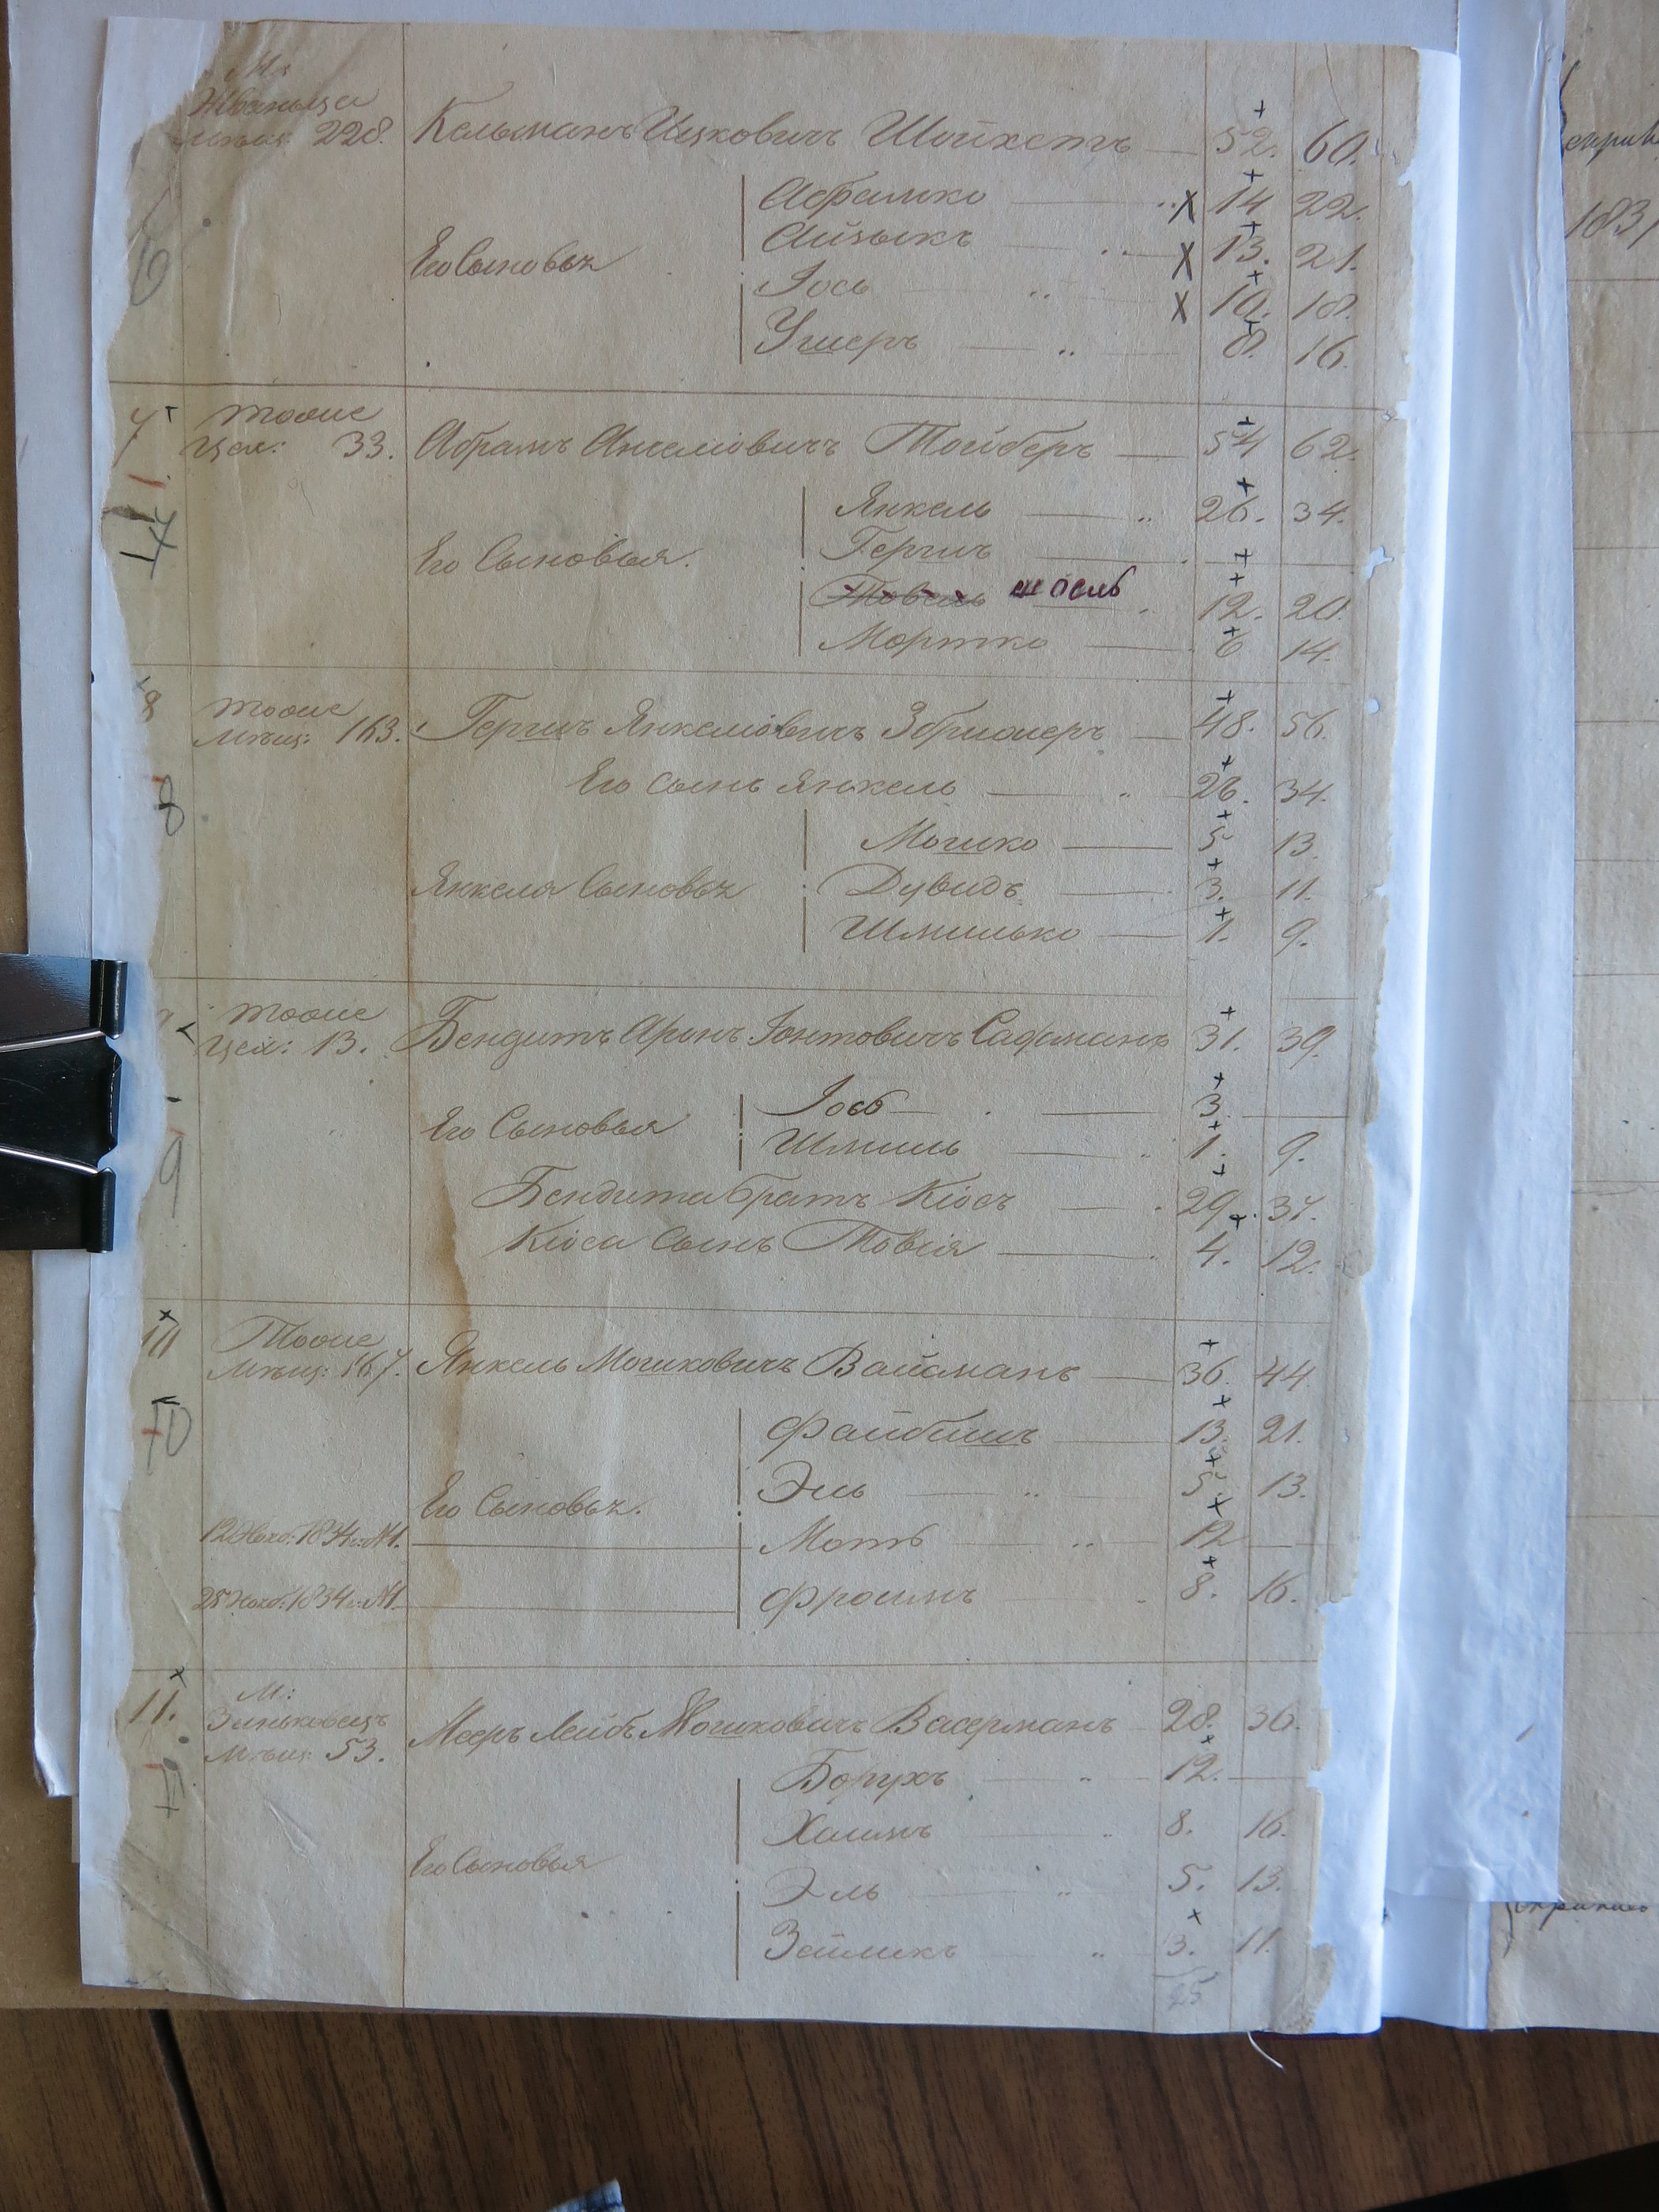 М:
Жванца
Мѣщ: 228. Кельманъ Ицковичъ Шойхетъ 52. 60.
Абрамко 14 22.
Айзыкъ 13. 21.
6 Его Сыновья
Іось 10. 18.
Ушеръ 8. 16.
7 тоже
Цех: 33. Абрамъ Анчелювичъ Тойберъ 54 62.
Янкель 26. 34.
7 Его Сыновья.
Гершъ
Товель шосль 12. 20.
Мортко 6 14.
8 тоже
Мѣщ: 163. Гершъ Янкелювичъ Збрижеръ 48. 56.
Его Сынъ Янкель 26. 34.
8
Мошко 5 13.
Янкеля Сыновья Дувидъ 3. 11.
Шмилько 1. 9.
тоже
Цех: 13. Бендитъ Аронъ Іонтовичъ Сафиманъ 31. 39.
Іось 3.
9 Его Сыновья
Шмиль 1. 9.
Бендита братъ Кіосъ 29. 37.
Кіоса Сынъ Товія 4. 12.
10 Тоже
Мѣщ: 167. Янкель Мошковичъ Вайсманъ 36. 44.
10 Файбишъ 13. 21.
Эль 5. 13.
Его Сыновья.
12 Нояб: 1834 г: №1. Моть 12
28 Нояб: 1834 г: №1. Фроимъ 8. 16.
11. М:
Зиньковецъ
Мѣщ: 53. Мееръ Лейбъ Мошковичъ Васерманъ 28. 36.
11 Борухъ 12.
Хаимъ 8. 16.
Его Сыновья
Эль 5. 13.
Зейликъ 3. 11.
25